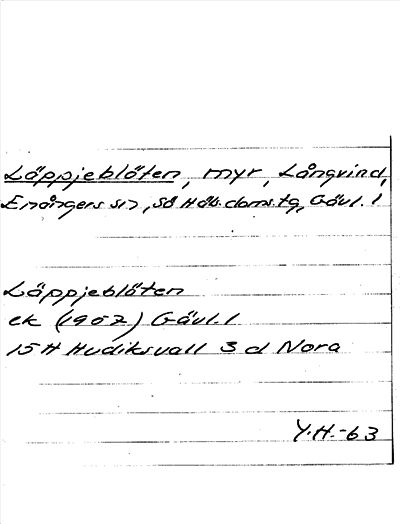 Läppjeblöten, myr, Långvind,
Enångers sn, SÖ Häls. doms.tg, Gävl. l
Läppjeblöten
ek (1952) Gävl. l
15 H Hudiksvall 3 d Nora
Y.H.-63